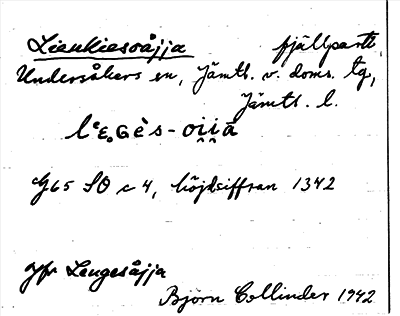 Lienkiesoåjja fjällparti,
Undersåkers sn, Jämtl. v. doms. tg,
Jämtl. l.
G65 SO c 4, höjdsiffran 1342
Jfr Lengesåjja
Björn Collinder 1942